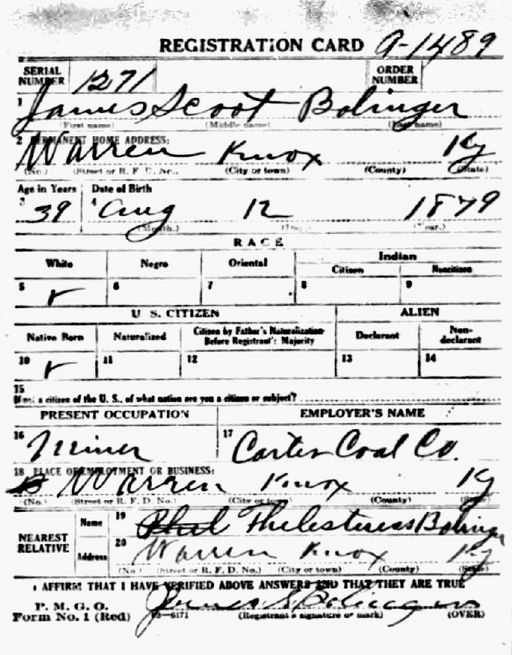 REGISTRATION CARD A-1489
SERIAL NUMBER 1271 ORDER NUMBER
1 James Scoot Bolinger
(First name) (Middle name) (Last name)
2 PERMANENT HOME ADDRESS:
Warren Knox Ky
(No.) (Street or R. F. D. No.) (City or town) (County) (State)
Age in Years Date of Birth
3 39 4 Aug 12 1879
(Month.) (Day.) (Year.)
RACE
White Negro Oriental Indian
Citizen Noncitizen
5 6 7 8 9
U. S. CITIZEN ALIEN
Native Born Naturalized Citizen by Father's Naturalization Before Registrant's Majority Declarant Non-declarant
10 11 12 13 14
15
If not a citizen of the U. S., of what nation are you a citizen or subject?
PRESENT OCCUPATION EMPLOYER'S NAME
16 Miner 17 Carter Coal Co.
18 PLACE OF EMPLOYMENT OR BUSINESS:
Warren Knox Ky
(No.) (Street or R. F. D. No.) (City or town) (County) (State)
NEAREST RELATIVE Name 19 Bolinger
Address 20 Warren Knox Ky
(No.) (Street or R. F. D. No.) (City or town) (County) (State)
I AFFIRM THAT I HAVE VERIFIED ABOVE ANSWERS AND THAT THEY ARE TRUE
P. M. G. O.
Form No. 1 (Red) 03-6171 James S Bolinger
(Registrant's signature or mark) (OVER)